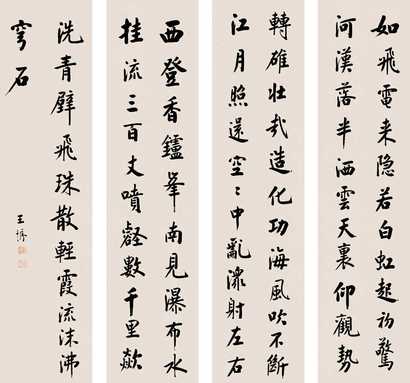 如飛電来隐若白虹起初驚
河漢落半洒雲天裏仰觀勢
轉雄壮哉造化功海風吹不断
江月照還空〻中亂潨射左右
西登香鑪峯南見瀑布水
挂流三百丈噴壑數千里歘
洗青壁飛珠散輕霞流沫沸
穹石
王